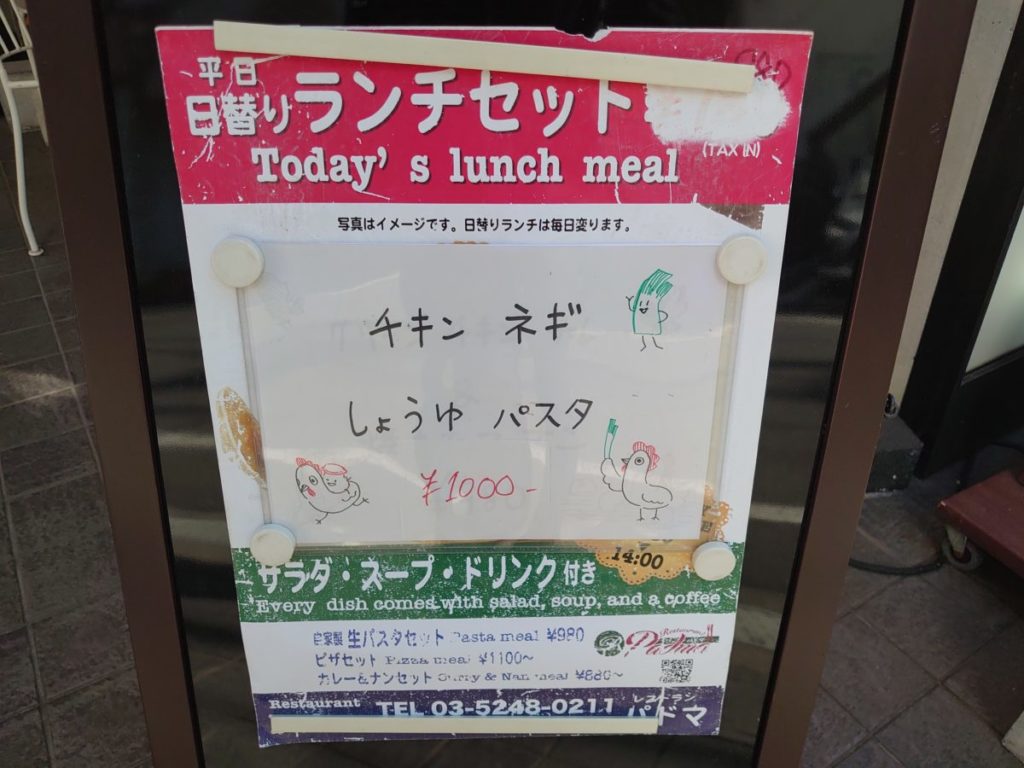 平日
日替り ランチセット
(TAX IN)
Today's lunch meal
写真はイメージです。日替りランチは毎日変ります。
チキン ネギ
しょうゆ パスタ
¥1000-
14:00
サラダ・スープ・ドリンク付き
Every dish comes with salad, soup, and a coffee
自家製 生パスタセット Pasta meal ¥980
ピザセット Pizza meal ¥1100~
カレー&ナンセット Curry & Nan meal ¥880~
Restaurant
Restaurant TEL 03-5248-0211 レストラン パドマ